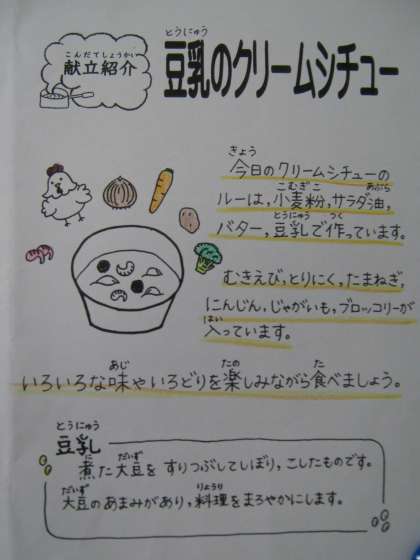 こんだてしょうかい
献立紹介
とうにゅう
豆乳のクリームシチュー
きょう
今日のクリームシチューの
こむぎこ あぶら
ルーは,小麦粉,サラダ油,
とうにゅう つく
バター,豆乳で作っています。
むきえび,とりにく,たまねぎ,
にんじん,じゃがいも,ブロッコリーが
はい
入っています。
あじ たの た
いろいろな味やいろどりを楽しみながら食べましょう。
とうにゅう
豆乳
に だいず
煮た大豆を すりつぶしてしぼり,こしたものです。
だいず りょうり
大豆のあまみがあり,料理をまろやかにします。